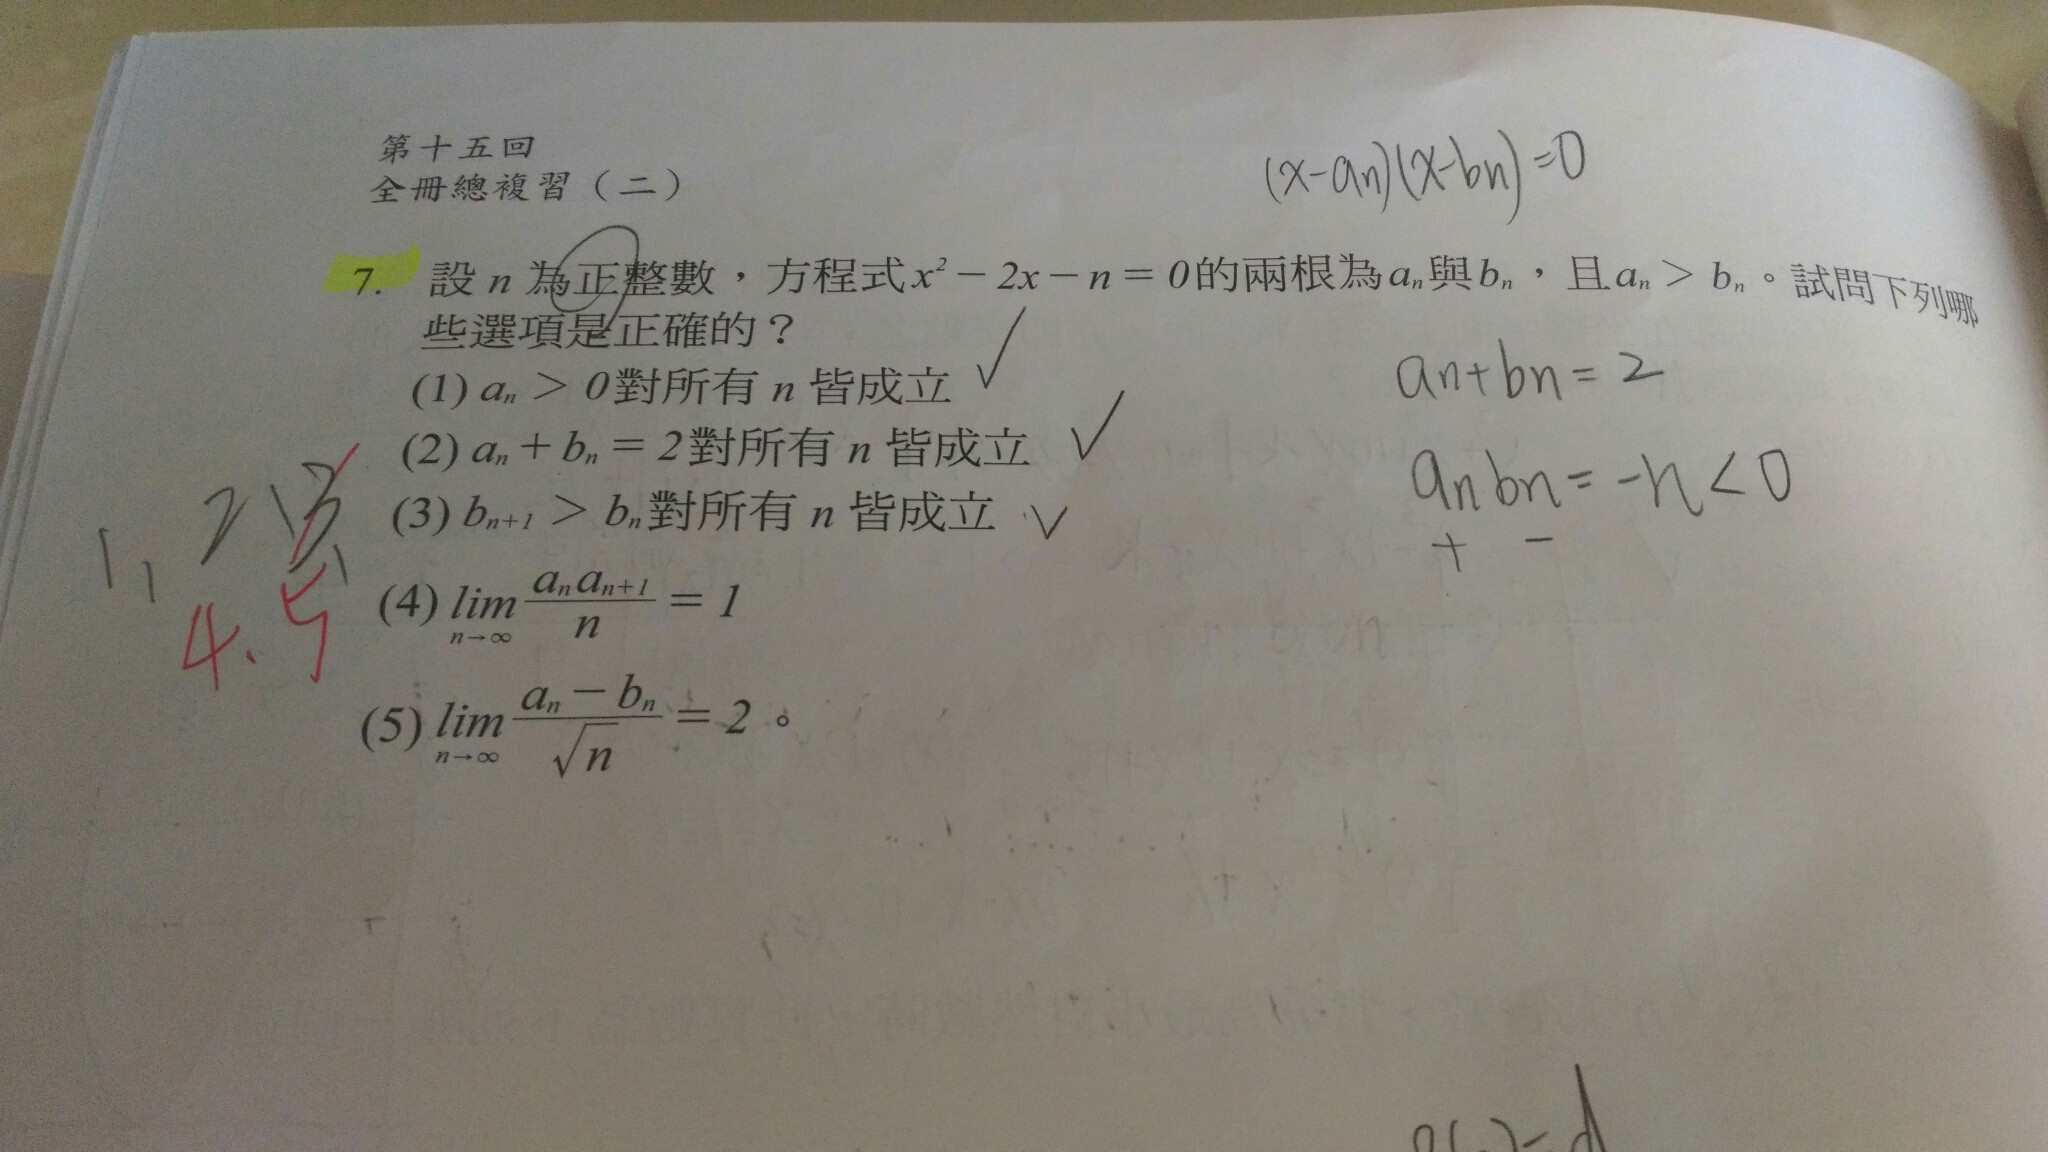 第十五回
全冊總複習（二）
(x-an)(x-bn)=0
7. 設 n 為正整數，方程式 x² − 2x − n = 0的兩根為 aₙ與 bₙ，且 aₙ > bₙ。試問下列哪
些選項是正確的？
(1) aₙ > 0對所有 n 皆成立 ✓
(2) aₙ + bₙ = 2對所有 n 皆成立 ✓
(3) bₙ₊₁ > bₙ對所有 n 皆成立 ✓
(4) lim n→∞ aₙaₙ₊₁/n = 1
(5) lim n→∞ (aₙ − bₙ)/√n = 2。
an+bn=2
anbn=-n<0
+ −
1, 2, 3,
4.5